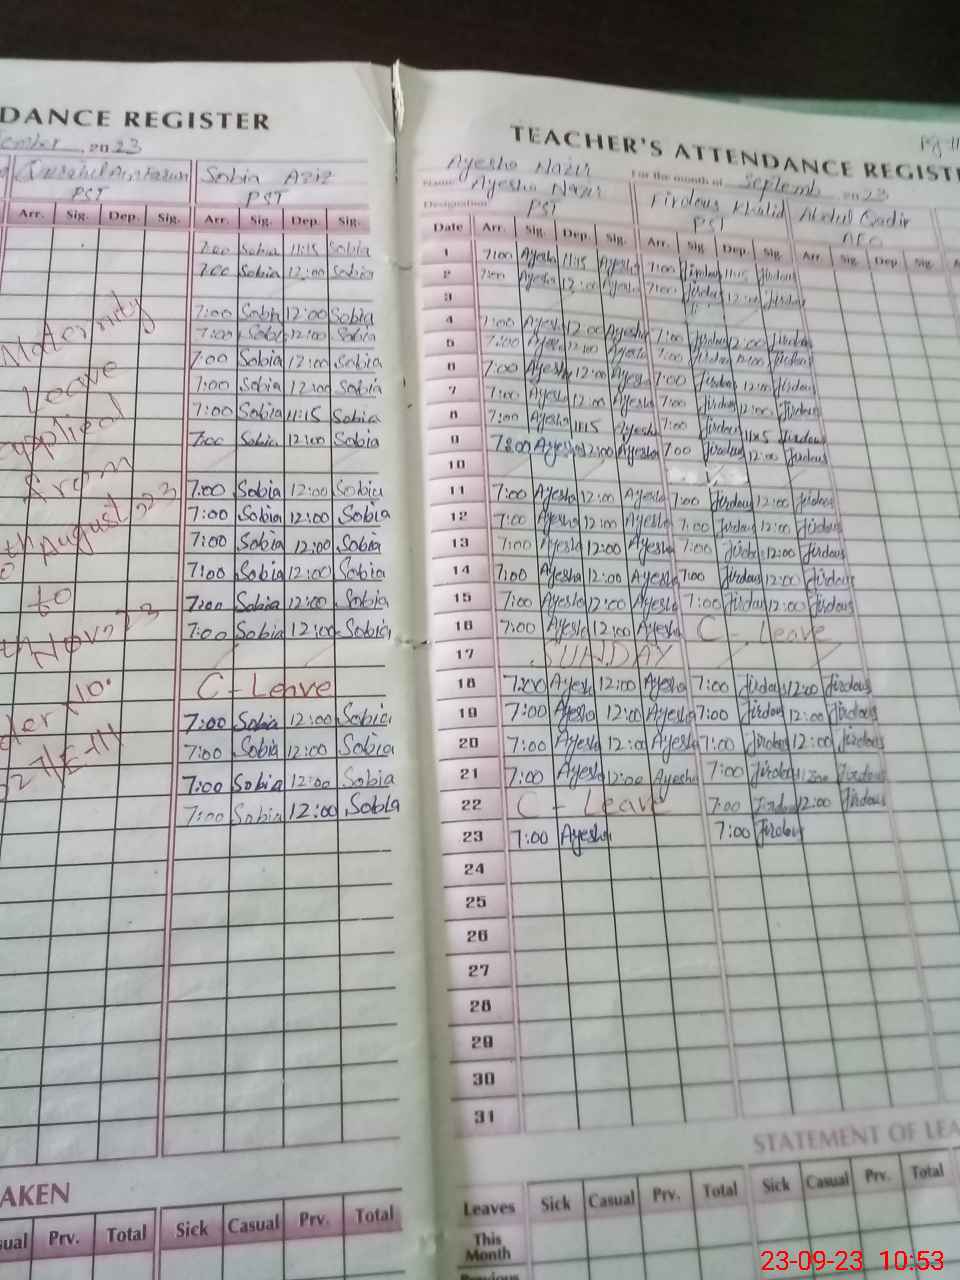 DANCE REGISTER
20 23
Sobia Aziz
PST PST
Arr. Sig. Dep. Sig. Arr. Sig. Dep. Sig.
7:00 Sobia 11:15 Sobia
7:00 Sobia 12:00 Sobia
7:00 Sobia 12:00 Sobia
7:00 Sobia 12:00 Sobia
7:00 Sobia 12:00 Sobia
7:00 Sobia 12:00 Sobia
7:00 Sobia 11:15 Sobia
7:00 Sobia 12:00 Sobia
7:00 Sobia 12:00 Sobia
7:00 Sobia 12:00 Sobia
7:00 Sobia 12:00 Sobia
7:00 Sobia 12:00 Sobia
7:00 Sobia 12:00 Sobia
7:00 Sobia 12:00 Sobia
C - Leave
7:00 Sobia 12:00 Sobia
7:00 Sobia 12:00 Sobia
7:00 Sobia 12:00 Sobia
7:00 Sobia 12:00 Sobia
Maternity
Leave
applied
from
August 23
to
Nov 23
AKEN
ual Prv. Total Sick Casual Prv. Total
TEACHER'S ATTENDANCE REGIST
Ayesha Nazir For the month of Septemb 20 23
Name Ayesha Nazir Firdous Khalid Abdul Qadir
Designation PST PST
Date Arr. Sig. Dep. Sig. Arr. Sig. Dep. Sig. Arr. Sig. Dep. Sig.
1 7:00 Ayesha 11:15 Ayesha 7:00 Firdous 11:15 Firdous
2 7:00 Ayesha 12:00 Ayesha 7:00 Firdous 12:00 Firdous
3
4 7:00 Ayesha 12:00 Ayesha 7:00 Firdous 12:00 Firdous
5 7:00 Ayesha 12:00 Ayesha 7:00 Firdous 12:00 Firdous
6 7:00 Ayesha 12:00 Ayesha 7:00 Firdous 12:00 Firdous
7 7:00 Ayesha 12:00 Ayesha 7:00 Firdous 12:00 Firdous
8 7:00 Ayesha 11:15 Ayesha 7:00 Firdous 11:15 Firdous
9 7:00 Ayesha 12:00 Ayesha 7:00 Firdous 12:00 Firdous
10
11 7:00 Ayesha 12:00 Ayesha 7:00 Firdous 12:00 Firdous
12 7:00 Ayesha 12:00 Ayesha 7:00 Firdous 12:00 Firdous
13 7:00 Ayesha 12:00 Ayesha 7:00 Firdous 12:00 Firdous
14 7:00 Ayesha 12:00 Ayesha 7:00 Firdous 12:00 Firdous
15 7:00 Ayesha 12:00 Ayesha 7:00 Firdous 12:00 Firdous
16 7:00 Ayesha 12:00 Ayesha C - Leave
17 SUNDAY
18 7:00 Ayesha 12:00 Ayesha 7:00 Firdous 12:00 Firdous
19 7:00 Ayesha 12:00 Ayesha 7:00 Firdous 12:00 Firdous
20 7:00 Ayesha 12:00 Ayesha 7:00 Firdous 12:00 Firdous
21 7:00 Ayesha 12:00 Ayesha 7:00 Firdous 12:00 Firdous
22 C - Leave 7:00 Firdous 12:00 Firdous
23 7:00 Ayesha 7:00 Firdous
24
25
26
27
28
29
30
31
STATEMENT OF LEA
Leaves Sick Casual Prv. Total Sick Casual Prv. Total
This Month
23-09-23 10:53